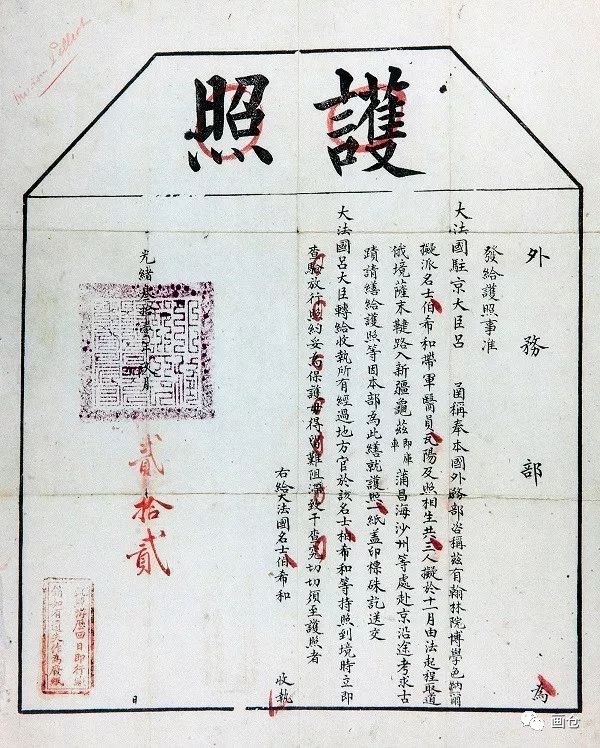 Mission Pelliot
護照
外務部 為
發給護照事准
大法國駐京大臣呂 函稱奉本國外務部咨稱茲有翰林院博學色納爾
擬派名士伯希和帶軍醫員瓦陽及照相生共三人擬於十一月由法起程取道
俄境薩末鞬路入新疆龜茲即庫車蒲昌海沙州等處赴京沿途考求古
蹟請繕給護照等因本部為此繕就護照一紙蓋印標硃訖送交
大法國呂大臣轉給收執所有經過地方官於該名士伯希和等持照到境時立即
查驗放行照約妥為保護毋得留難阻滯致干查究切切須至護照者
右給大法國名士伯希和 收執
光緒叁拾壹年玖月 貳拾貳 日
游歷回日即行繳
銷如有遺失作為廢紙
画仓